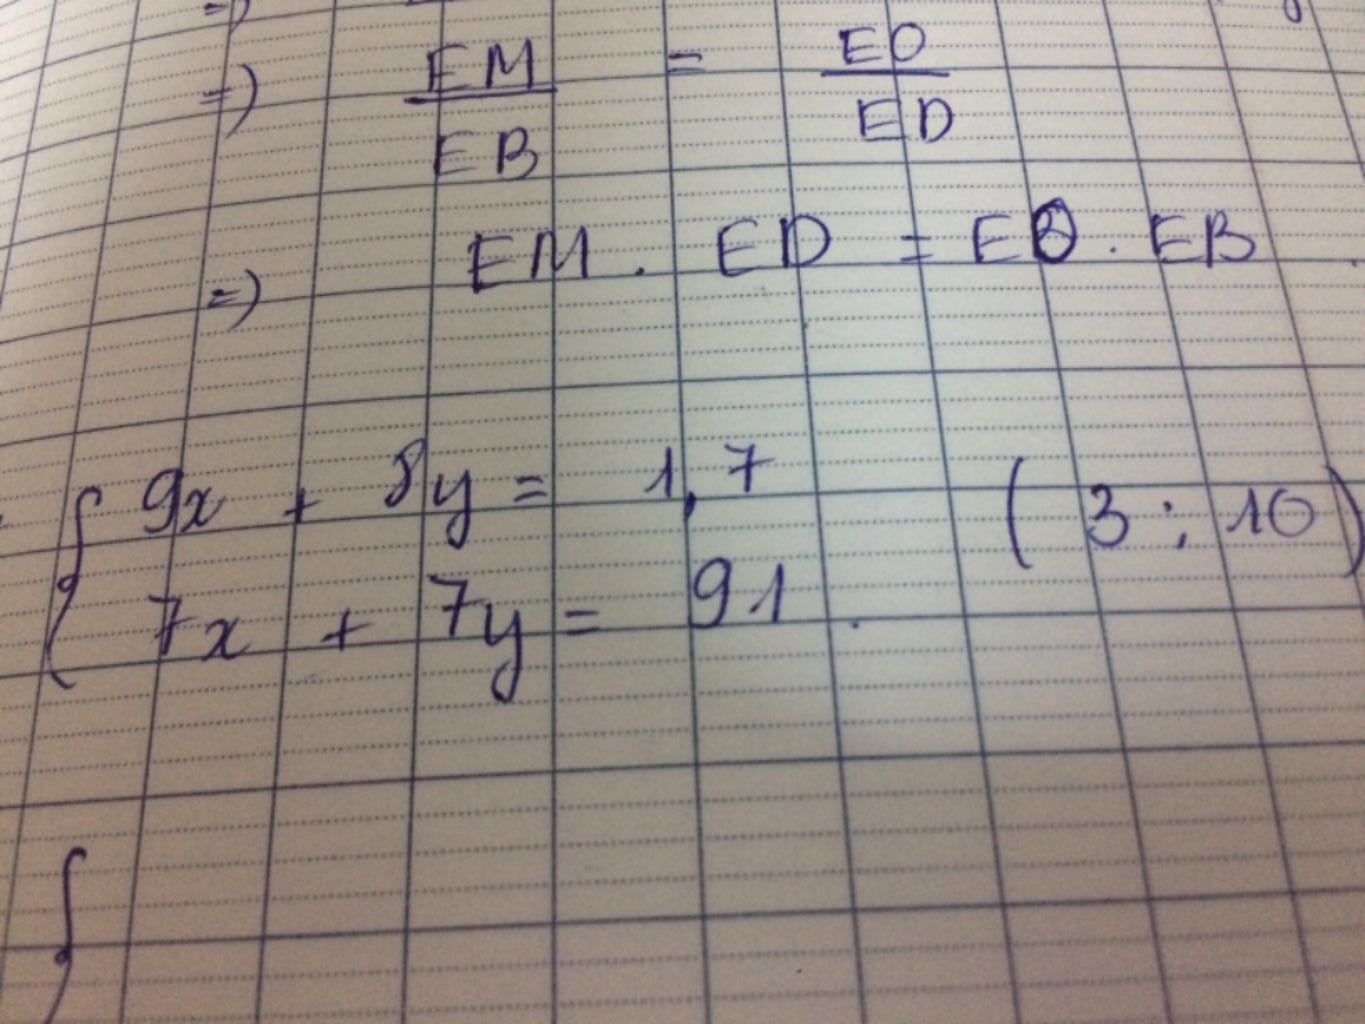 =)
=) EM/EB = EO/ED
=) EM . ED = EO . EB
{ 9x + 8y = 1,7 (3 ; 10)
7x + 7y = 91 .
{